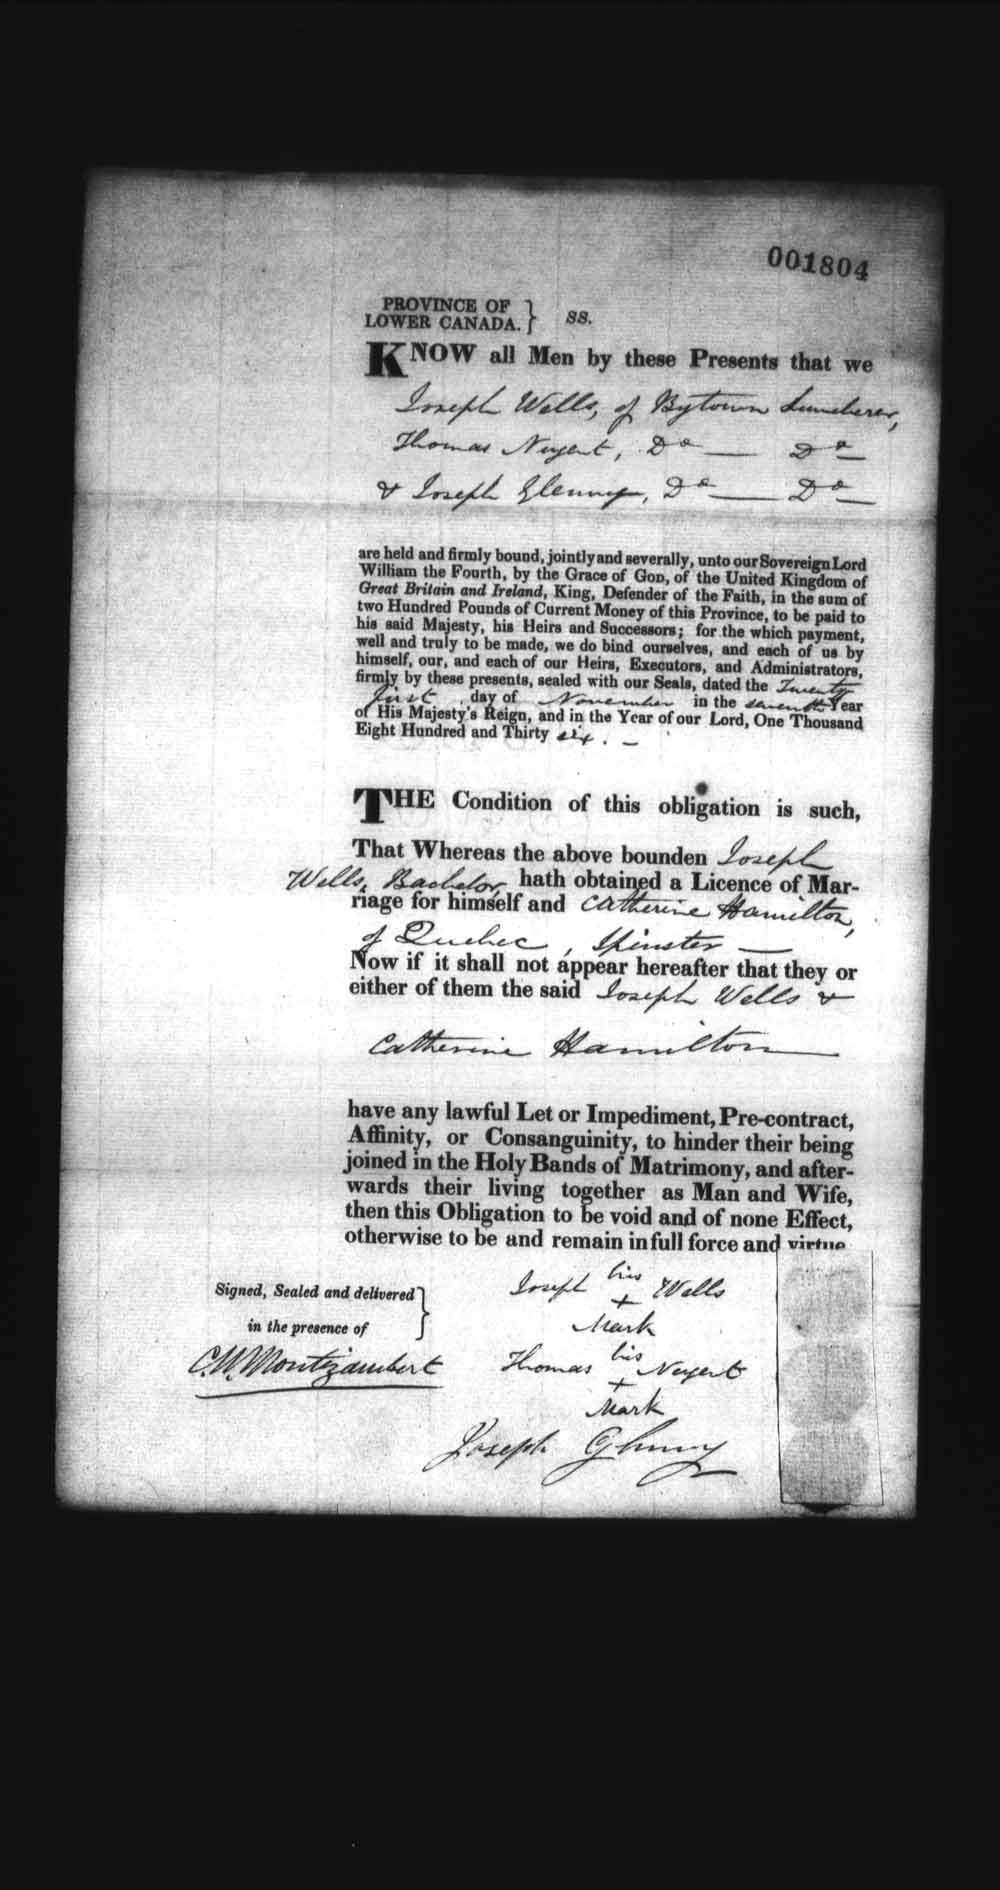 001804
PROVINCE OF
LOWER CANADA. } SS.
KNOW all Men by these Presents that we
Joseph Wells, of Bytown Lumberer,
Thomas Nugent, Do — Do —
& Joseph Glenny, Do — Do —
are held and firmly bound, jointly and severally, unto our Sovereign Lord
William the Fourth, by the Grace of GOD, of the United Kingdom of
Great Britain and Ireland, King, Defender of the Faith, in the sum of
two Hundred Pounds of Current Money of this Province, to be paid to
his said Majesty, his Heirs and Successors; for the which payment,
well and truly to be made, we do bind ourselves, and each of us by
himself, our, and each of our Heirs, Executors, and Administrators,
firmly by these presents, sealed with our Seals, dated the Twenty
first day of November in the seventh Year
of His Majesty's Reign, and in the Year of our Lord, One Thousand
Eight Hundred and Thirty six. —
THE Condition of this obligation is such,
That Whereas the above bounden Joseph
Wells, Bachelor, hath obtained a Licence of Mar-
riage for himself and Catherine Hamilton,
of Quebec, Spinster —
Now if it shall not appear hereafter that they or
either of them the said Joseph Wells &
Catherine Hamilton
have any lawful Let or Impediment, Pre-contract,
Affinity, or Consanguinity, to hinder their being
joined in the Holy Bands of Matrimony, and after-
wards their living together as Man and Wife,
then this Obligation to be void and of none Effect,
otherwise to be and remain in full force and virtue
Signed, Sealed and delivered }
in the presence of
C.N. Montizambert
Joseph his Wells
+
Mark
Thomas his Nugent
+
Mark
Joseph Glenny